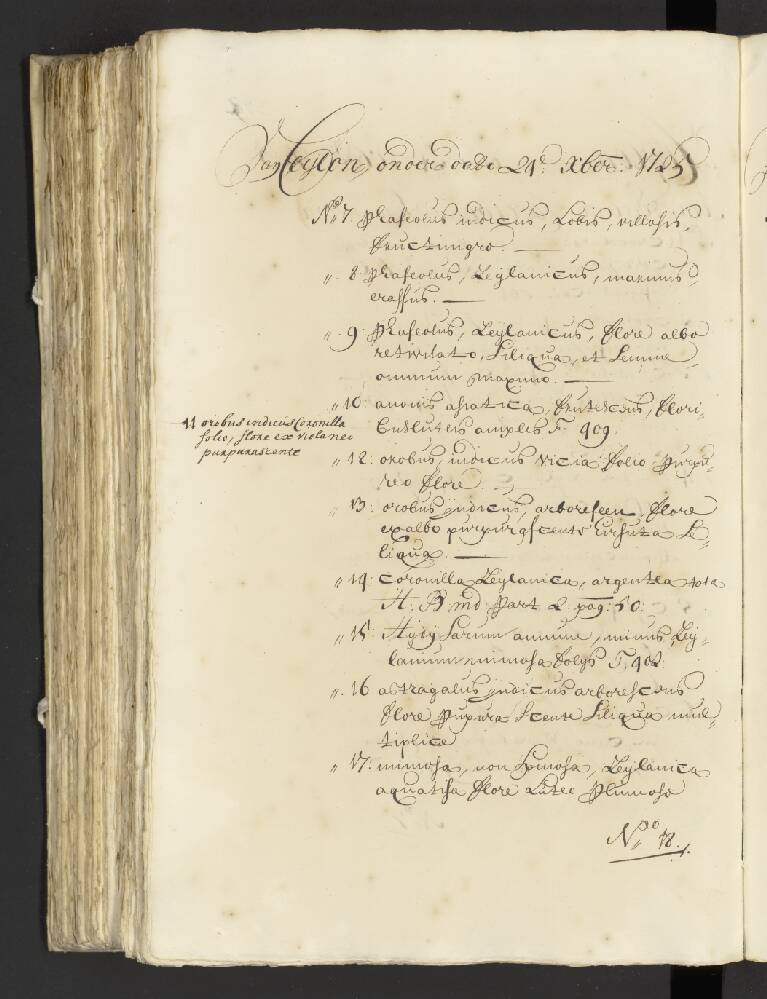 Van Ceylon, onder dato 21: Xber: 1725
No 7. Phaseolus indicus, Lobis, villosis,
fructi nigro. —
„ 8: Phaseolus, Zeylanicus, maximus
crassus. —
„ 9: Phaseolus, Zeylanicus, flore albo
Siliqua, et Semine
omnium maximo. —
„ 10: anonis asiatica, frutescens, flori-
bus luteis amplis F. 909.
11 orobus indicus Coronilla
folio, flore ex violaneo
purpurascente
„ 12: orobus, indicus vicia folio purpu-
reo flore —
„ 13: orobus yndicus, arborescen, flore
ex albo purpurascente hirsuta Si-
liqua. —
„ 14: Coronilla Zeylanica, argentea tota
H: B: md: Part 2. pag: 50:
„ 15: minus, Zey-
mimosa folys F. 902.
„ 16 astragalus yndicus arborescens
flore pupurascente Siliqua mul-
tiplice
„ 17: mimosa, non Spinosa, Zeylanica
aquatisa flore Luteo Plumoso
No 18.